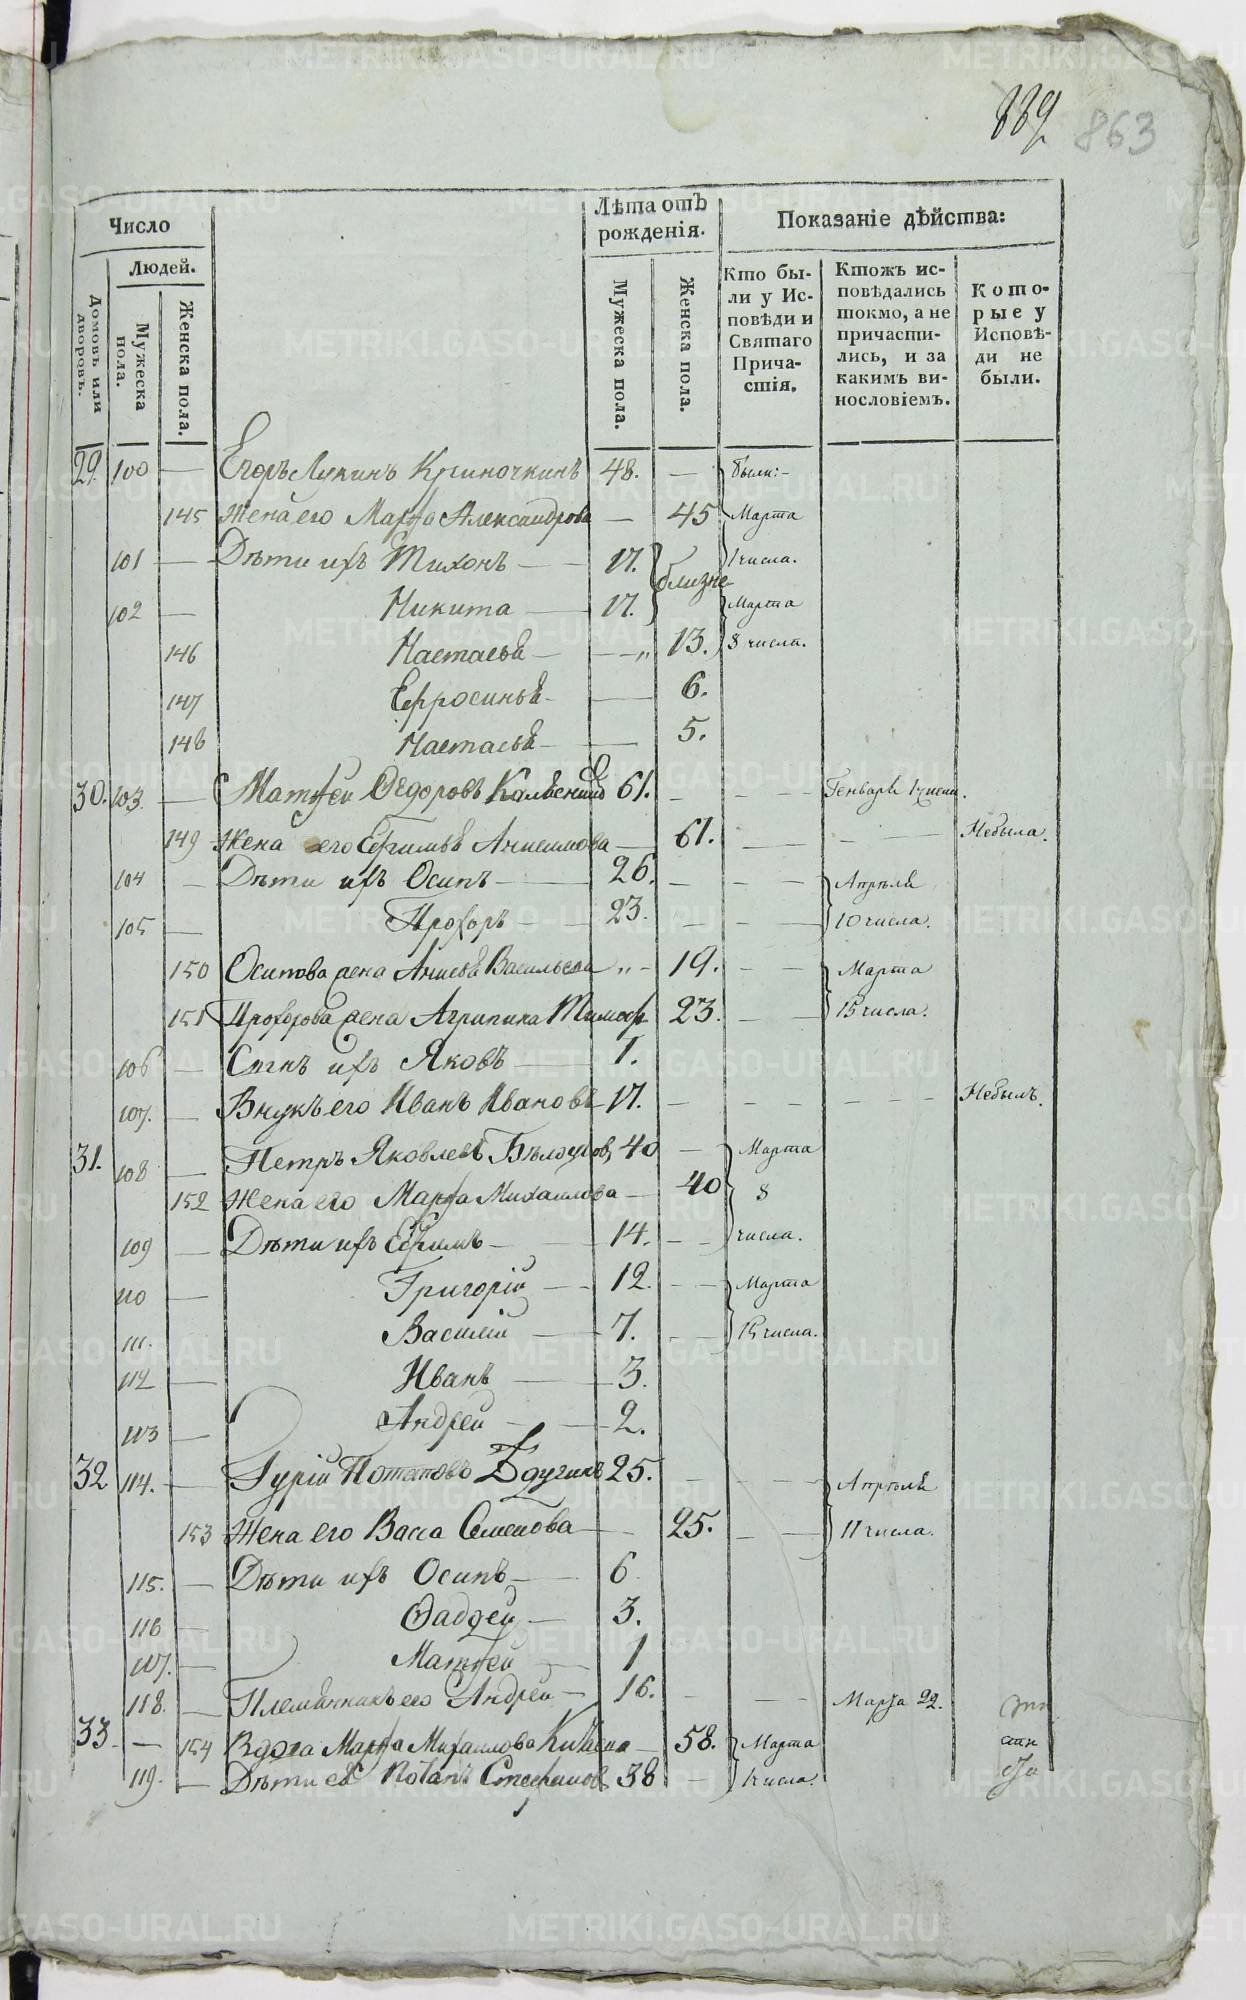 889 863
Число
Людей.
Домовъ или дворовъ.
Мужеска пола.
Женска пола.
Лѣта отъ
рожденія.
Мужеска пола.
Женска пола.
Показаніе дѣйства:
Кто бы-
ли у Ис-
повѣди и
Святаго
Прича-
стія.
Ктожъ ис-
повѣдались
токмо, а не
причасти-
лись, и за
какимъ ви-
нословіемъ.
Кото-
рые у
Исповѣ-
ди не
были.
29. 100 — Егоръ Лукинъ Криночкинъ 48. — были:-
145 Жена его Марѳа Александрова — 45 Марта
101 — Дѣти ихъ Тихонъ — 17. близне 1 числа.
102 — Никита — 17. Марта
146 Настасья — — „ 13. 8 числа.
147 Ефросинья — 6.
148 Настасья — 5.
30. 103 — Матѳей Ѳедоровъ 61. — Генваря 1 числа.
149 Жена его Ефимья Анисимова — 61. — — Небыла.
104 — Дѣти ихъ Осипъ — 26. — — Апрѣля
105 — Прохоръ — 23. — — 10 числа.
150 Осипова жена Анисья Васильева „ — 19. — — Марта
151 Прохорова жена Агрипина Тимоф 23. — — 15 числа.
106 — Сынъ ихъ Яковъ — 1.
107. — Внукъ его Иванъ Ивановъ 17. — — — — — Небылъ.
31. 108 — Петръ Яковлевъ 40 — Марта
152 Жена его Марѳа Михаилова — 40 8
109 — Дѣти ихъ Ефимъ — 14. — — числа.
110 — Григорій — 12. — — Марта
111. Василій — 7. — — 15 числа.
112 — Иванъ — 3.
113 — Андрей — 2.
32 114. — Гурій Потаповъ 25. — — Апрѣля
153 Жена его Васса Семенова — 25. — — 11 числа.
115. — Дѣти ихъ Осипъ — 6
116 — Ѳадѳей — 3.
117. — Матѳей — 1
118. — Племянникъ его Андрей — 16. — — Марта 22.
33. — 154 Вдова Марѳа Михаилова — 58. Марта
119. — Дѣти еѣ Потапъ Стефановъ 38 — 1 числа.
METRIKI.GASO-URAL.RU